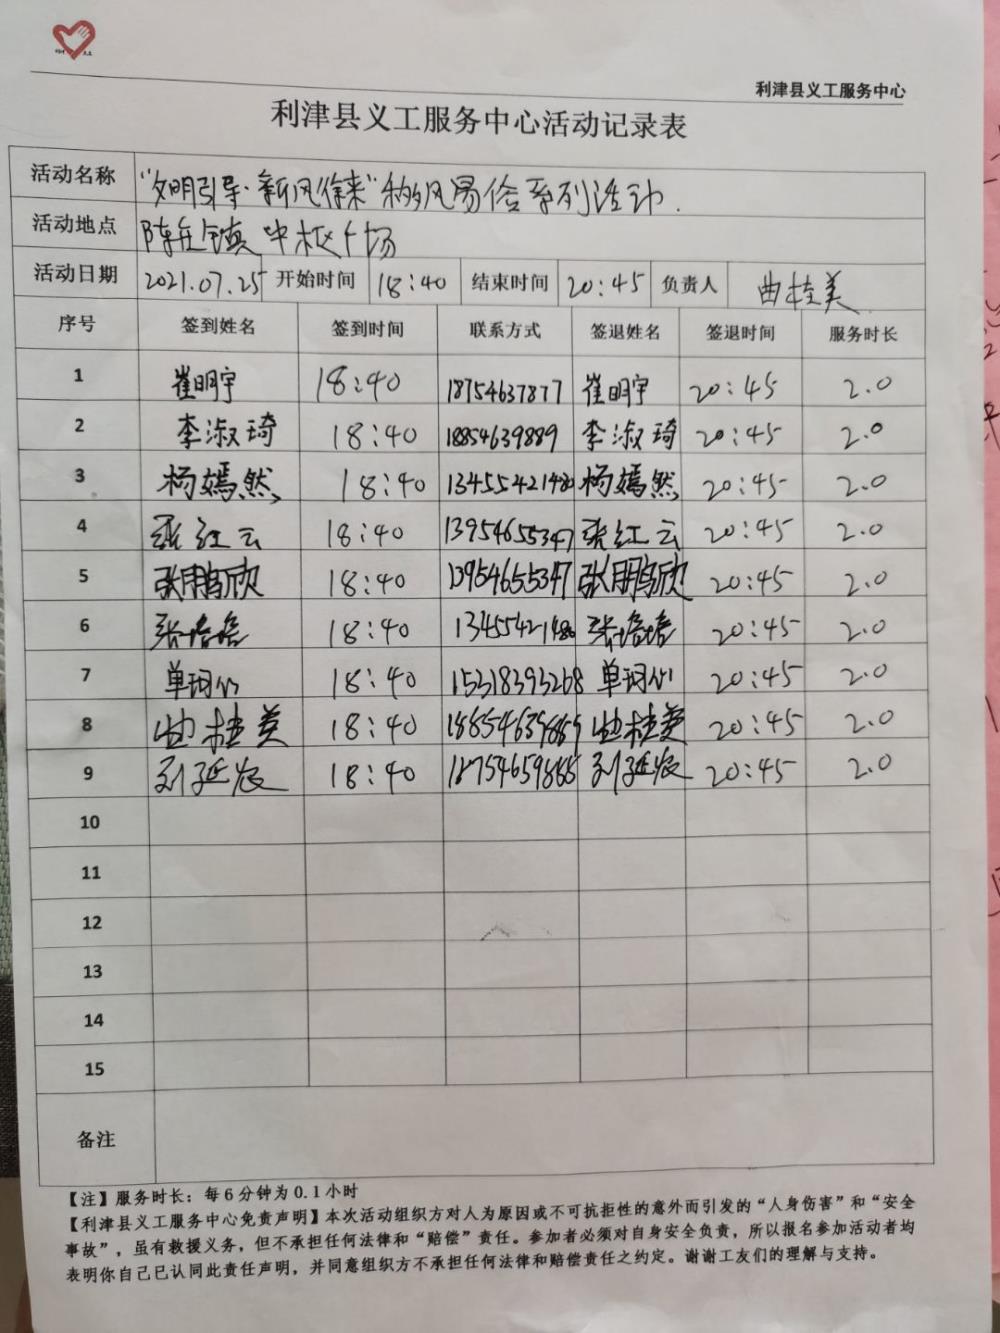 利津县义工服务中心
利津县义工服务中心活动记录表
活动名称 "文明引导·新风徐来"移风易俗系列活动.
活动地点 陈庄镇中枢广场
活动日期 2021.07.25 开始时间 18:40 结束时间 20:45 负责人 曲桂美
序号 签到姓名 签到时间 联系方式 签退姓名 签退时间 服务时长
1 崔明宇 18:40 18754637877 崔明宇 20:45 2.0
2 李淑琦 18:40 18854639889 李淑琦 20:45 2.0
3 杨嫣然 18:40 13455421480 杨嫣然 20:45 2.0
4 张红云 18:40 13954655347 张红云 20:45 2.0
5 张鹏欣 18:40 13954655347 张鹏欣 20:45 2.0
6 18:40 13455421480 20:45 2.0
7 18:40 15318393268 20:45 2.0
8 曲桂美 18:40 18854639889 曲桂美 20:45 2.0
9 18:40 20:45 2.0
10
11
12
13
14
15
备注
【注】服务时长：每6分钟为0.1小时
【利津县义工服务中心免责声明】本次活动组织方对人为原因或不可抗拒性的意外而引发的“人身伤害”和“安全
事故”，虽有救援义务，但不承担任何法律和“赔偿”责任。参加者必须对自身安全负责，所以报名参加活动者均
表明你自己已认同此责任声明，并同意组织方不承担任何法律和赔偿责任之约定。谢谢工友们的理解与支持。